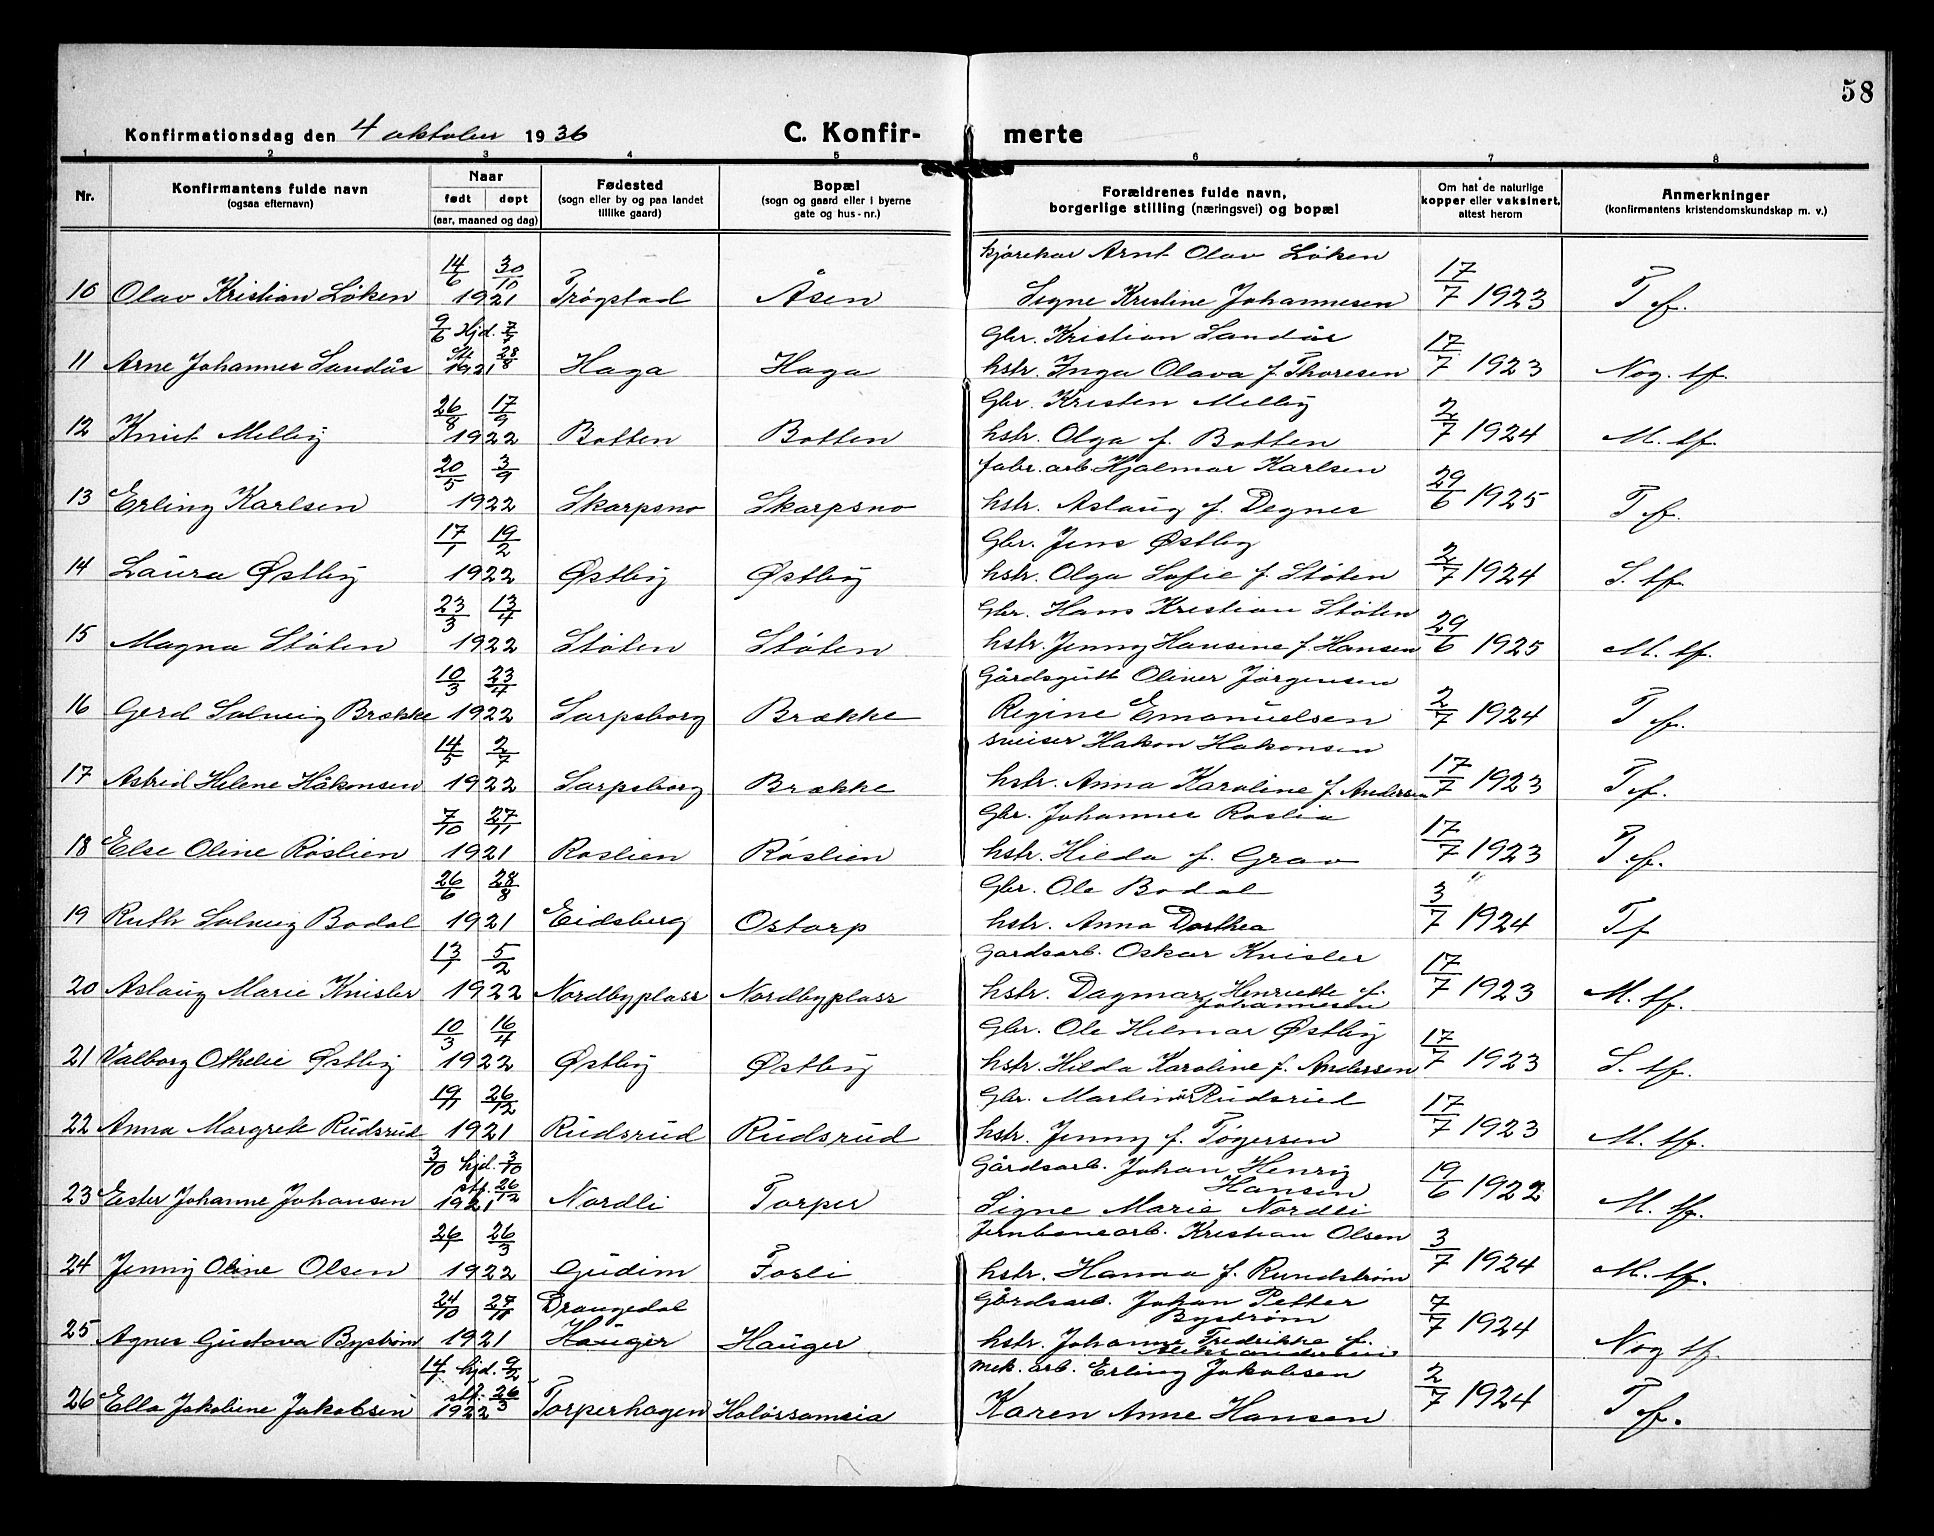 58
Konfirmationsdag den 4 oktober 1936
C. Konfir- merte
1 2 3 4 5 6 7 8
Nr.
Konfirmantens fulde navn
(ogsaa efternavn)
Naar
født døpt
(aar, maaned og dag)
Fødested
(sogn eller by og paa landet
tillike gaard)
Bopæl
(sogn og gaard eller i byerne
gate og hus-nr.)
Forældrenes fulde navn,
borgerlige stilling (næringsvei) og bopæl
Om hat de naturlige
kopper eller vaksinert,
attest herom
Anmerkninger
(konfirmantens kristendomskundskap m. v.)
14/6 30/10 kjørekar Arnt Olav Løken
10 Olav Kristian Løken 1921 Trøgstad Åsen Signe Kristine Johannesen 17/7 1923 T f.
9/6 Hjd. 7/7 Gbr. Kristian Sandås
11 Arne Johannes Sandås Stf 28/8 1921 Haga Haga hstr. Inga Olava f. Thoresen 17/7 1923 Nog. tf.
26/8 17/9 Gbr. Kristen Melby
12 Knut Melby 1922 Botten Botten hstr. Olga f. Botten 2/7 1924 M. tf.
20/5 3/9 fabr. arb. Hjalmar Karlsen
13 Erling Karlsen 1922 Skarpsno Skarpsno hstr. Aslaug f. Degnes 29/6 1925 T f.
17/1 19/2 Gbr. Jens Østby
14 Laura Østby 1922 Østby Østby hstr. Olga Sofie f. Støten 2/7 1924 S. tf.
23/3 13/4 Gbr. Hans Kristian Støten
15 Magna Støten 1922 Støten Støten hstr. Jenny Hansine f. Hansen 29/6 1925 M. tf.
10/3 23/4 Gårdsgutt Oliver Jørgensen
16 Gerd Solveig Brække 1922 Sarpsborg Brække Regine Emanuelsen 2/7 1924 T f.
14/5 2/7 sveiser Hakon Hakonsen
17 Astrid Helene Håkonsen 1922 Sarpsborg Brække hstr. Anna Karoline f. Andersen 17/7 1923 T f.
7/10 27/11 Gbr. Johannes Roslie
18 Else Oline Røslien 1921 Roslien Røslien hstr. Hilda f. Grav 17/7 1923 T f.
26/6 28/8 Gbr. Ole Bodal
19 Ruth Solveig Bodal 1921 Eidsberg Ostorp hstr. Anna Dorthea 3/7 1924 T f
13/1 5/2 Gardsarb. Oskar Knisler
20 Aslaug Marie Knisler 1922 Nordbyplass Nordbyplass hstr. Dagmar Henriette f. Johannesen 17/7 1923 M. tf.
10/3 16/4 Gbr. Ole Hilmar Østby
21 Valborg Othelie Østby 1922 Østby Østby hstr. Hilda Karoline f. Andersen 17/7 1923 S. tf.
19/11 26/12 Gbr. Martinius Rudsrud
22 Anna Margrete Rudsrud 1921 Rudsrud Rudsrud hstr. Jenny f. Tøgersen 17/7 1923 M. tf.
3/10 hjd. 3/10 Gårdsarb. Johan Henry Hansen
23 Ester Johanne Johansen stf. 26/12 1921 Nordli Torper Signe Marie Nordli 19/6 1922 M. tf.
26/1 26/3 Jernbanearb. Kristian Olsen
24 Jenny Oline Olsen 1922 Gudim Fosli hstr. Hanna f. Rundstrøm 3/7 1924 M. tf.
24/10 27/11 Drangedal Gårdsarb. Johan Petter Bystrøm
25 Agnes Gustava Bystrøm 1921 Hauger Hauger hstr. Johanne Fredrikke f. 7/7 1924 Nog tf.
14/1 hjd. 9/2 mek. arb. Erling Jakobsen
26 Ella Jakobine Jakobsen stf. 26/3 1922 Torperhagen Karen Anne Hansen 2/7 1924 T f.